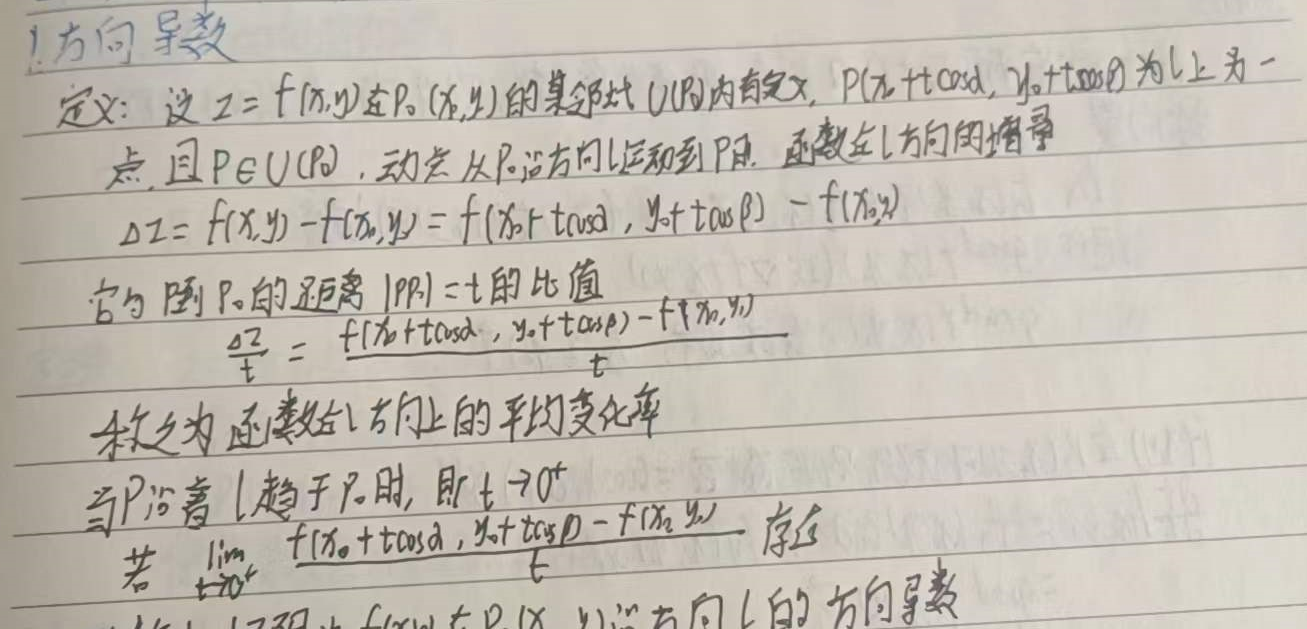 1.方向导数
定义: 设 z = f(x,y)在P₀(x₀,y₀)的某邻域 U(P₀)内有定义, P(x₀+tcosα, y₀+tcosβ)为l上另一
点,且P∈U(P₀),动点从P₀沿方向l运动到P时,函数在l方向的增量
Δz = f(x,y) - f(x₀,y₀) = f(x₀+tcosα, y₀+tcosβ) - f(x₀,y₀)
它与P到P₀的距离 |PP₀|=t 的比值
Δz/t = f(x₀+tcosα, y₀+tcosβ) - f(x₀,y₀) / t
称之为函数在l方向上的平均变化率
当P沿着l趋于P₀时, 即 t→0⁺
若 lim t→0⁺ f(x₀+tcosα, y₀+tcosβ) - f(x₀,y₀) / t 存在
f(x,y)在P₀(x₀,y₀)沿方向l的方向导数